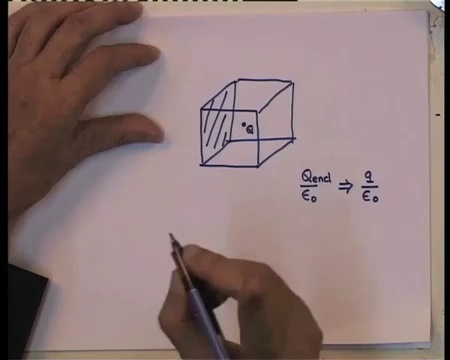 Q
Qencl/ε₀ ⇒ q/ε₀